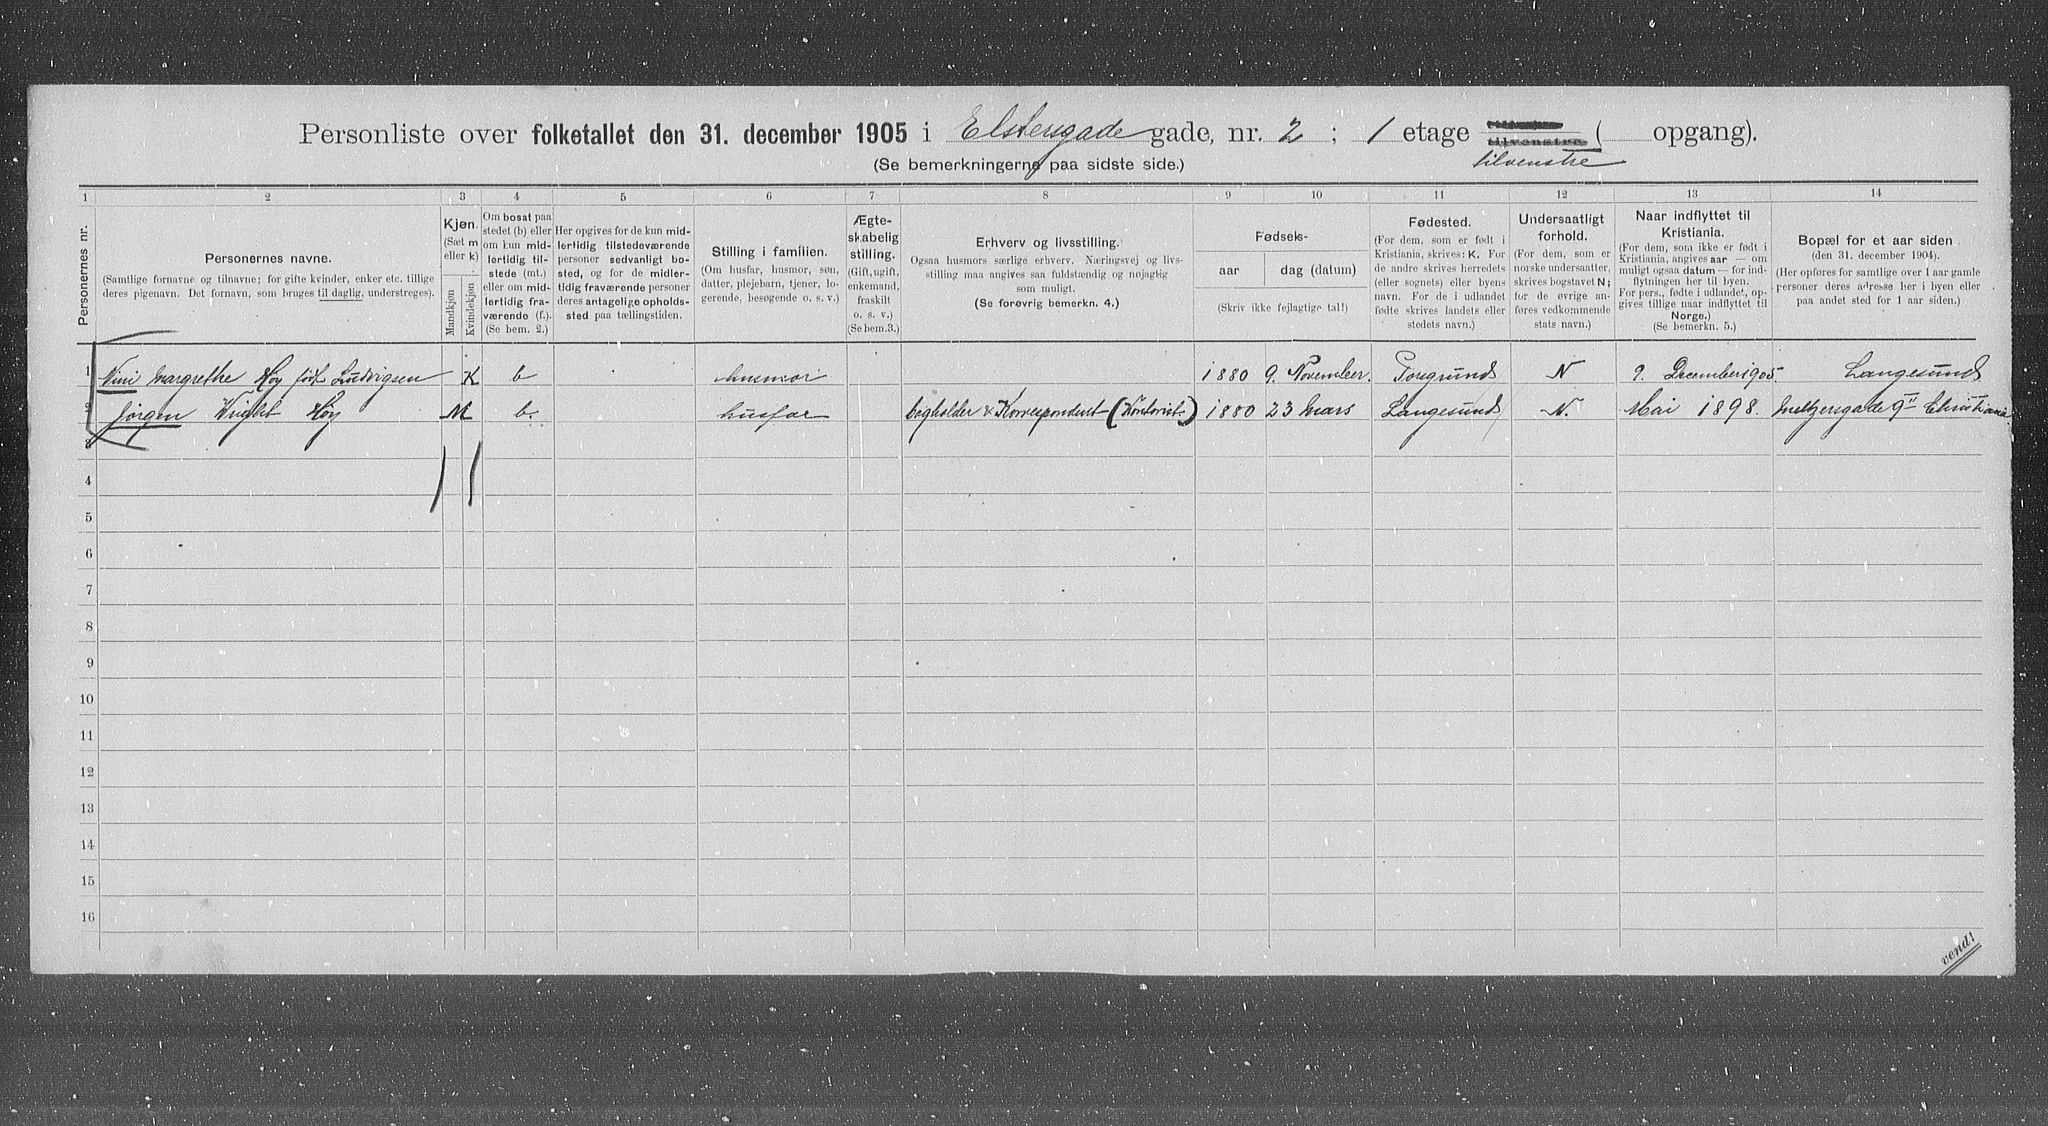 Personliste over folketallet den 31. december 1905 i Elstersgade gade, nr. 2 ; 1 etage tilvenstre ( opgang).
(Se bemerkningerne paa sidste side.)
tilvenstre
1 2 3 4 5 6 7 8 9 10 11 12 13 14
Personernes nr.
Personernes navne.
(Samtlige fornavne og tilnavne; for gifte kvinder, enker etc. tillige
deres pigenavn. Det fornavn, som bruges til daglig, understreges).
Kjøn.
(Sæt m
eller k)
Mandkjøn
Kvindekjøn
Om bosat paa
stedet (b) eller
om kun mid-
lertidig til-
stede (mt.)
eller om mid-
lertidig fra-
værende (f.).
(Se bem. 2.)
Her opgives for de kun mid-
lertidig tilstedeværende
personer sedvanligt bo-
sted, og for de midler-
tidig fraværende personer
deres antagelige opholds-
sted paa tællingstiden.
Stilling i familien.
(Om husfar, husmor, søn,
datter, plejebarn, tjener, lo-
gerende, besøgende o. s. v.)
Ægte-
skabelig
stilling.
(Gift, ugift,
enkemand,
fraskilt
o. s. v.)
(Se bem.3.)
Erhverv og livsstilling.
Ogsaa husmors særlige erhverv. Næringsvej og livs-
stilling maa angives saa fuldstændig og nøjagtig
som muligt.
(Se forøvrig bemerkn. 4.)
Fødsels-
aar
dag (datum)
(Skriv ikke fejlagtige tal!)
Fødested.
(For dem, som er født i
Kristiania, skrives: K. For
de andre skrives herredets
(eller sognets) eller byens
navn. For de i udlandet
fødte skrives landets eller
stedets navn.)
Undersaatligt
forhold.
(For dem, som er
norske undersaatter,
skrives bogstavet N;
for de øvrige an-
føres vedkommende
stats navn.)
Naar indflyttet til
Kristiania.
(For dem, som ikke er født i
Kristiania, angives aar — om
muligt ogsaa datum — for ind-
flytningen her til byen.
For pers., fødte i udlandet, op-
gives tillige naar indflyttet til
Norge.)
(Se bemerkn. 5.)
Bopæl for et aar siden
(den 31. december 1904).
(Her opføres for samtlige over 1 aar gamle
personer deres adresse her i byen eller
paa andet sted for 1 aar siden.)
1 Nini Margrethe Høy født Ludvigsen K b husmor 1880 9. November. Porsgrund N 9. December 1905. Langesund
2 Jørgen Wright Høy M b. husfar bogholder & Korrespondent (Kontorist) 1880 23 Mars Langesund N. Mai 1898. Meltzersgade 9 II Christiania.
3
4
5
6
7
8
9
10
11
12
13
14
15
16
vend!